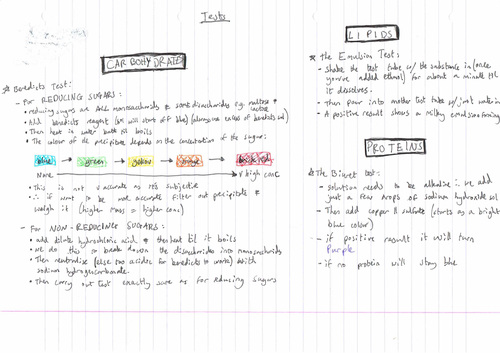 Tests
CARBOHYDRATES
* Benedicts Test:
- For REDUCING SUGARS:
• reducing sugars are ALL monosaccharides & some disaccharides e.g. maltose & lactose
• Add benedicts reagent (will start off blue) (always use excess of benedicts sol)
• Then heat in water bath til boils
• The colour of the precipitate depends on the concentration of the sugar:
blue → green → yellow → orange → brick red
None → V high conc
• This is not v accurate as its subjective
• ∴ if want to be more accurate filter out precipitate &
weigh it (higher mass = higher conc)
- For NON-REDUCING SUGARS:
• add dilute hydrochloric acid & then heat til it boils
• we do this to break down the disaccharides into monosaccharides
• Then neutralise (else too acidic for benedicts to work) with
sodium hydrogencarbonate.
• Then carry out test exactly same as for reducing sugars
LIPIDS
* The Emulsion Test:
- Shake the test tube w/ the substance in (once
you've added ethanol) for about a minute til
it dissolves.
- Then pour into another test tube w/ just water in
- A positive result shows a milky emulsion forming
PROTEINS
* The Biuret test:
- solution needs to be alkaline ∴ we add
just a few drops of sodium hydroxide sol
- Then add copper II sulfate (starts as a bright
blue color)
- if positive result it will turn
Purple
- if no protein will stay blue